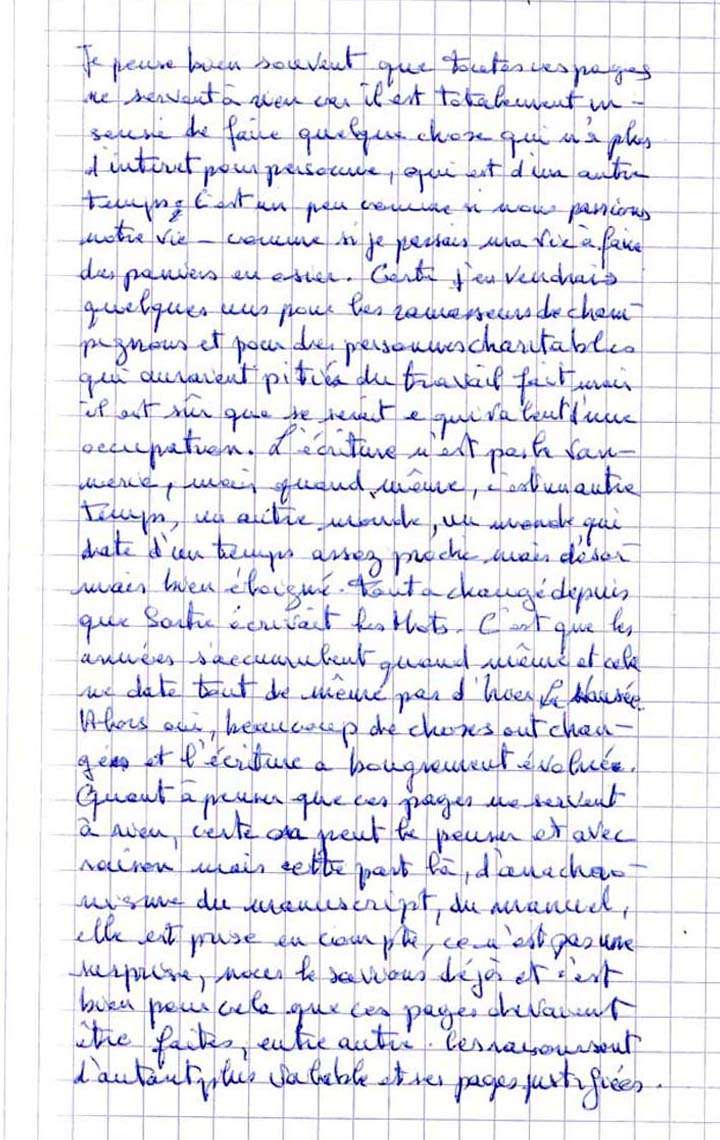 Je pense bien souvent que toutes ces pages
ne servent à rien car il est totalement in-
sensé de faire quelque chose qui n'a plus
d'intérêt pour personne, qui est d'un autre
temps. C'est un peu comme si nous passions
notre vie – comme si je passais ma vie à faire
des paniers en osier. Certe j'en vendrais
quelques uns pour les ramasseurs de cham-
pignons et pour des personnes charitables
qui auraient pitiés du travail fait mais
il est sûr que se serait equivalent d'une
occupation. L'écriture n'est pas la van-
nerie, mais quand même, c'est un autre
temps, un autre monde, un monde qui
date d'un temps assez proche mais désor-
mais bien éloigné. Tout a changé depuis
que Sartre écrivait Les Mots. C'est que les
années s'accumulent quand même et cela
ne date tout de même pas d'hier La Nausée.
Alors oui, beaucoup de choses ont chan-
gées et l'écriture a bougrement évoluée.
Quant à penser que ces pages ne servent
à rien, certe on peut le penser et avec
raison mais cette part là, d'anachro-
nisme du manuscript, du manuel,
elle est prise en compte, ce n'est pas une
surprise, nous le savions déjà et c'est
bien pour cela que ces pages devaient
être faites, entre autre. Les raisons sont
d'autant plus valable et ses pages justifiées.